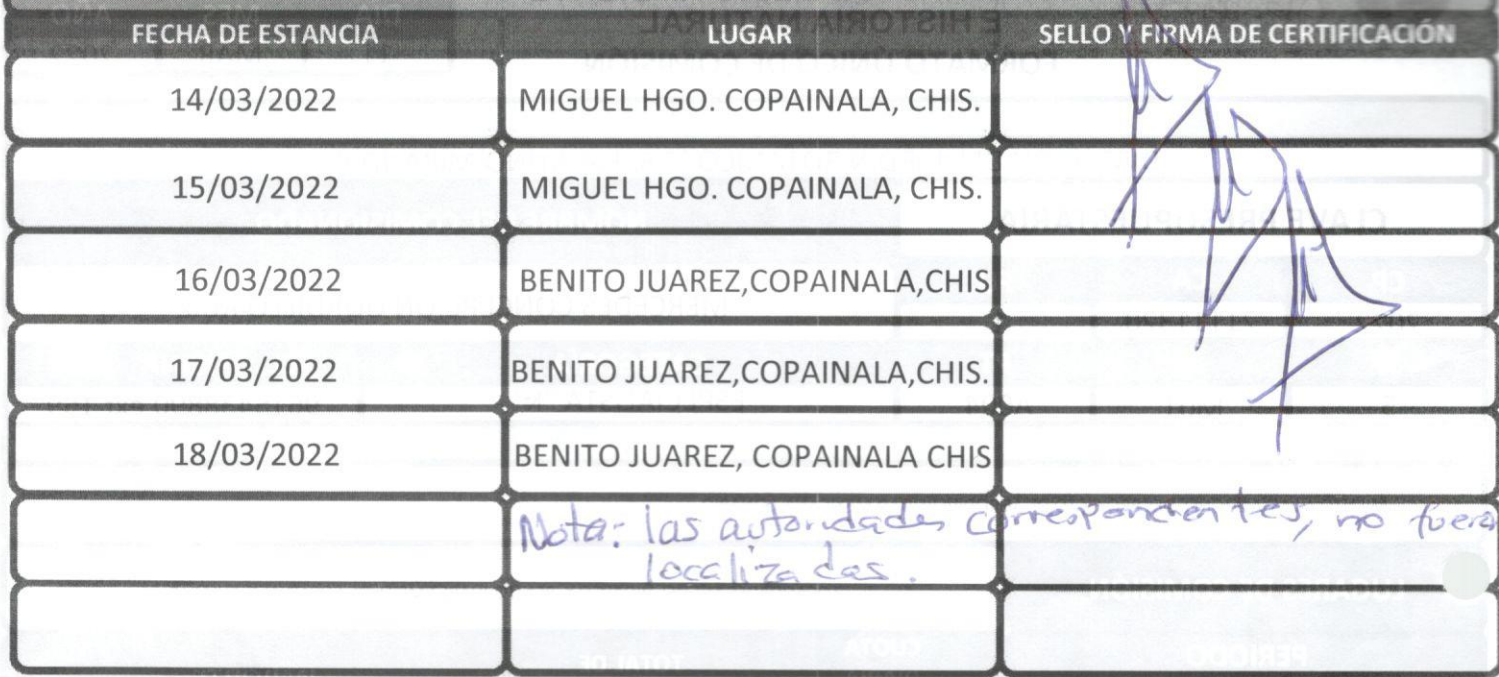 FECHA DE ESTANCIA LUGAR SELLO Y FIRMA DE CERTIFICACIÓN
14/03/2022 MIGUEL HGO. COPAINALA, CHIS.
15/03/2022 MIGUEL HGO. COPAINALA, CHIS.
16/03/2022 BENITO JUAREZ,COPAINALA,CHIS
17/03/2022 BENITO JUAREZ,COPAINALA,CHIS.
18/03/2022 BENITO JUAREZ, COPAINALA CHIS
Nota: las autoridades correspondientes, no fuera
localizadas.